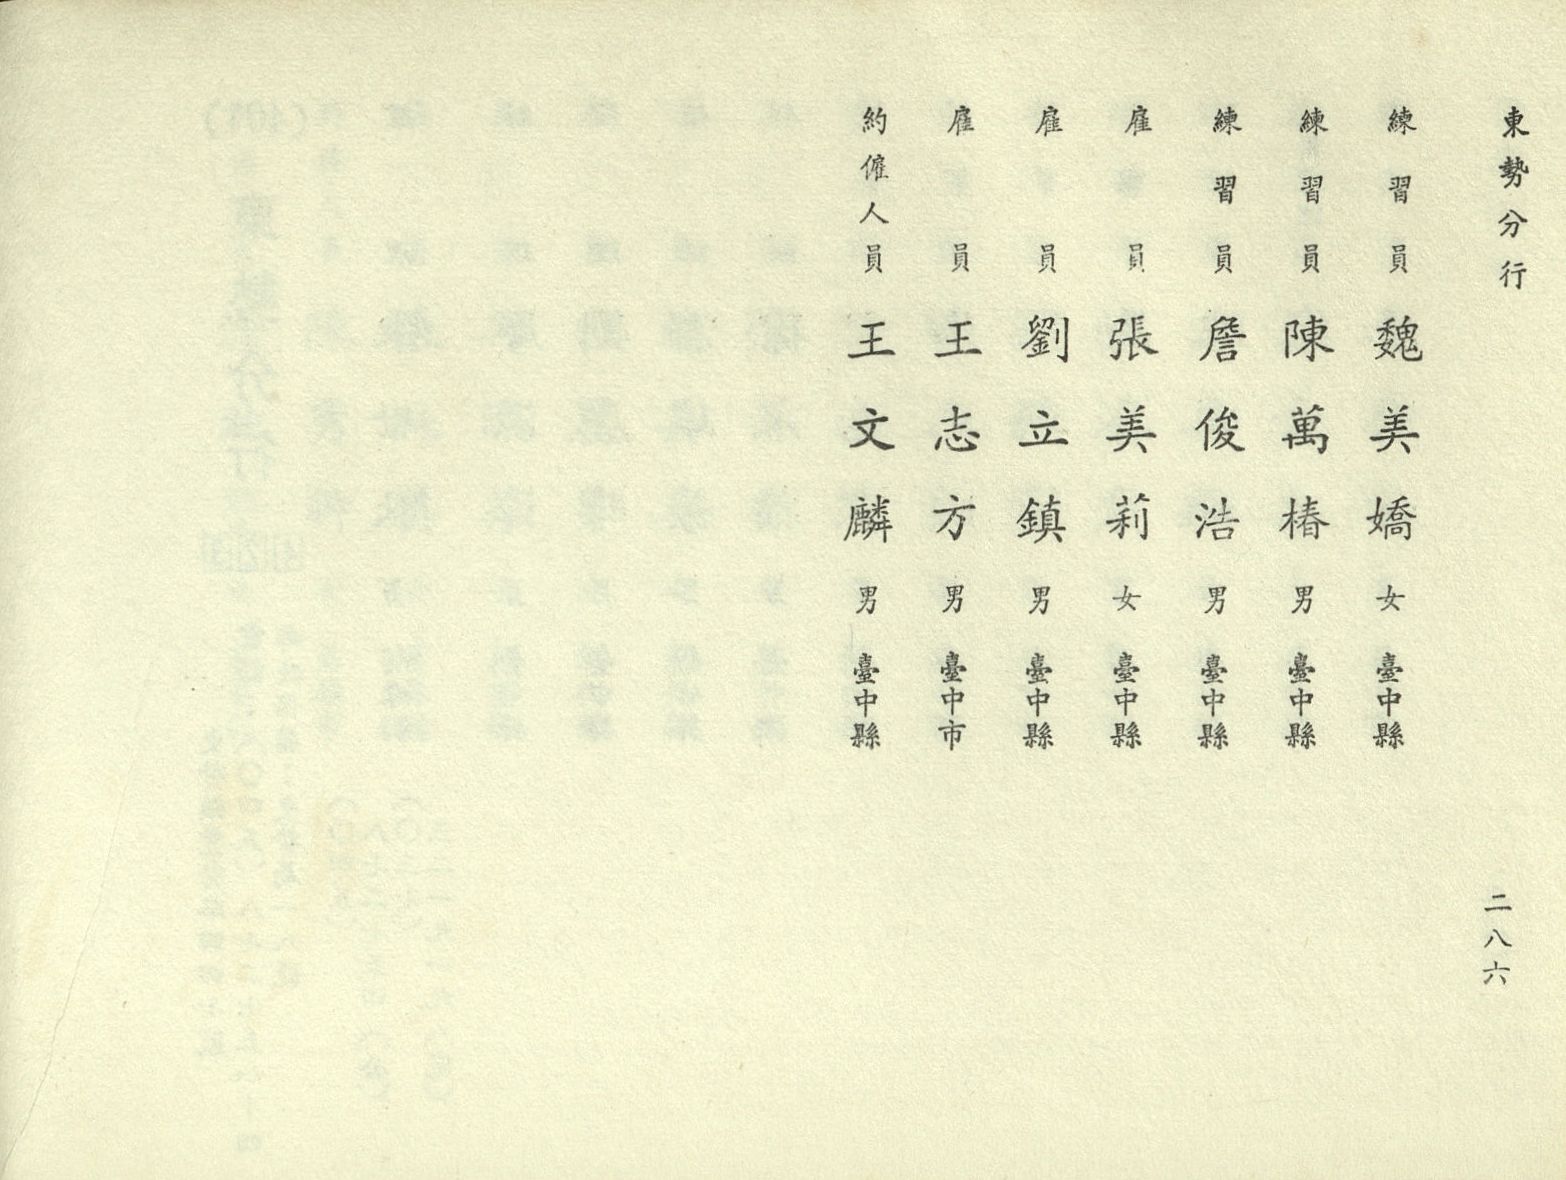 東勢分行
二八六
練習員 魏美嬌 女 臺中縣
練習員 陳萬椿 男 臺中縣
練習員 詹俊浩 男 臺中縣
雇員 張美莉 女 臺中縣
雇員 劉立鎮 男 臺中縣
雇員 王志方 男 臺中市
約僱人員 王文麟 男 臺中縣